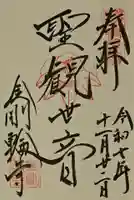 奉拝
令和七年
十一月廿二日
聖観世音
金剛輪寺